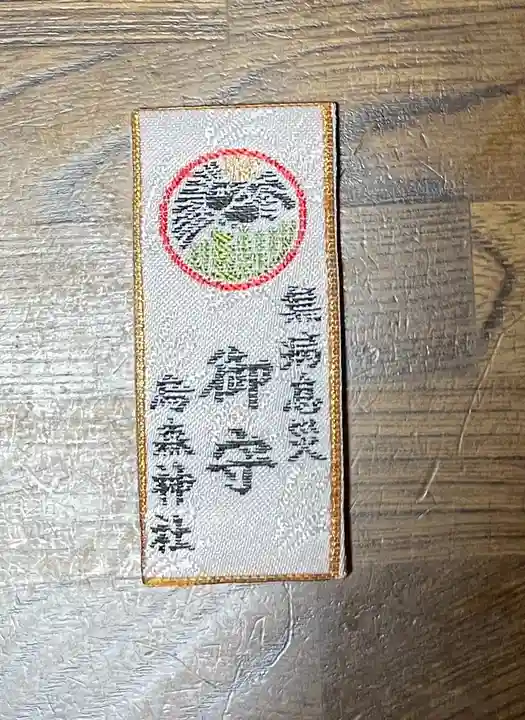 無病息災
御守
神社